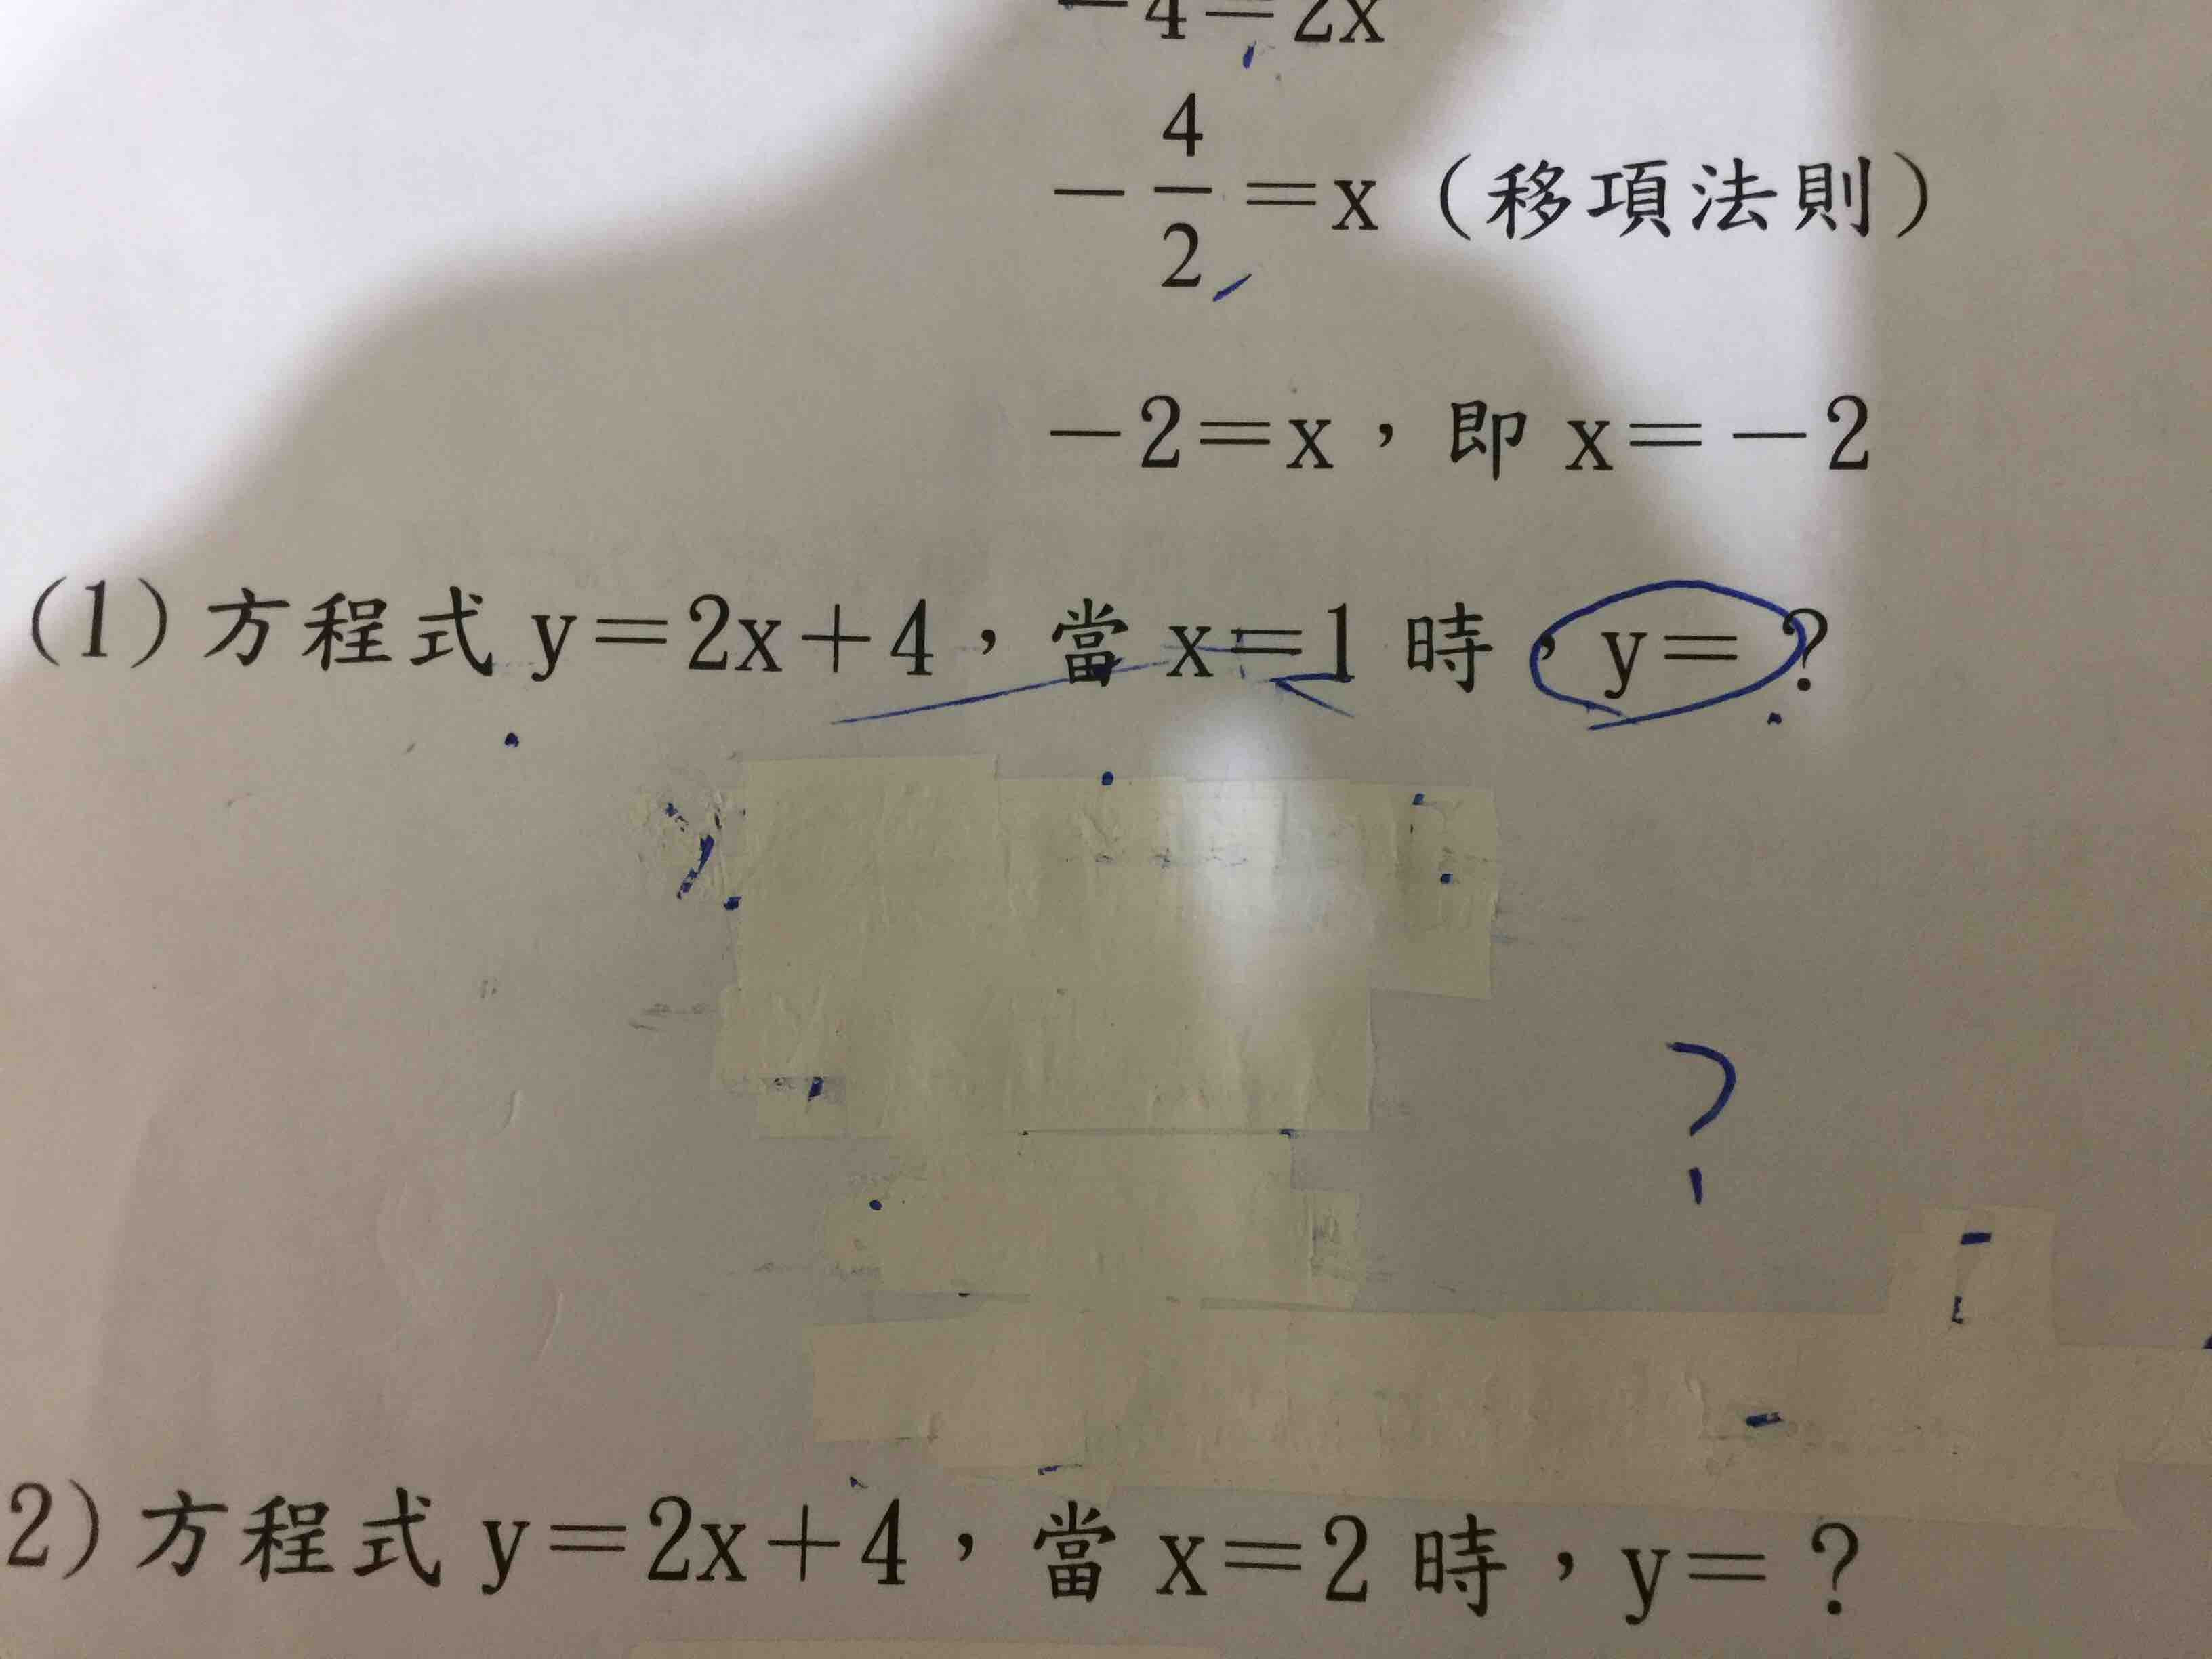 －4＝2x
－4/2＝x（移項法則）
－2＝x，即 x＝－2
(1)方程式 y＝2x＋4，當 x＝1 時，y＝？
?
2)方程式 y＝2x＋4，當 x＝2 時，y＝？